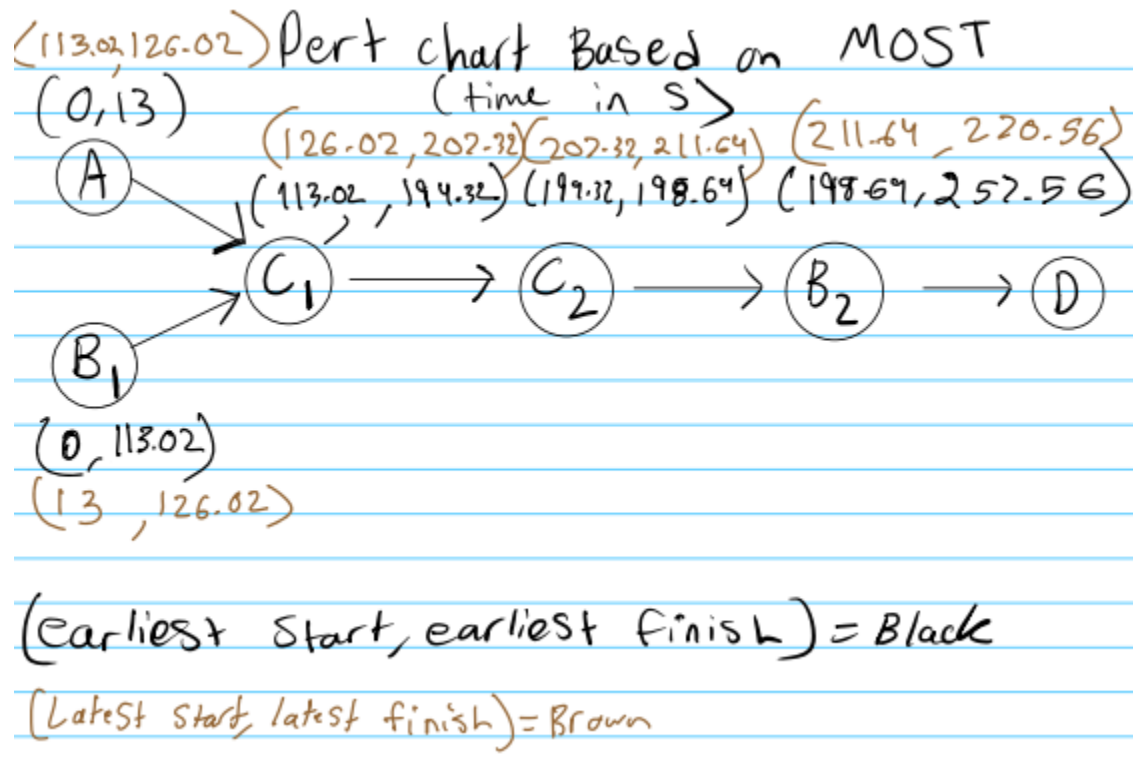 (113.02,126.02) Pert chart Based on MOST
(0,13) (time in s)
(126.02,207.32)(207.32,211.64) (211.64,220.56)
A (113.02,194.32) (194.32,198.64) (198.64,257.56)
C1 C2 B2 D
B1
(0,113.02)
(13,126.02)
(earliest start, earliest finish) = Black
(Latest start, latest finish) = Brown